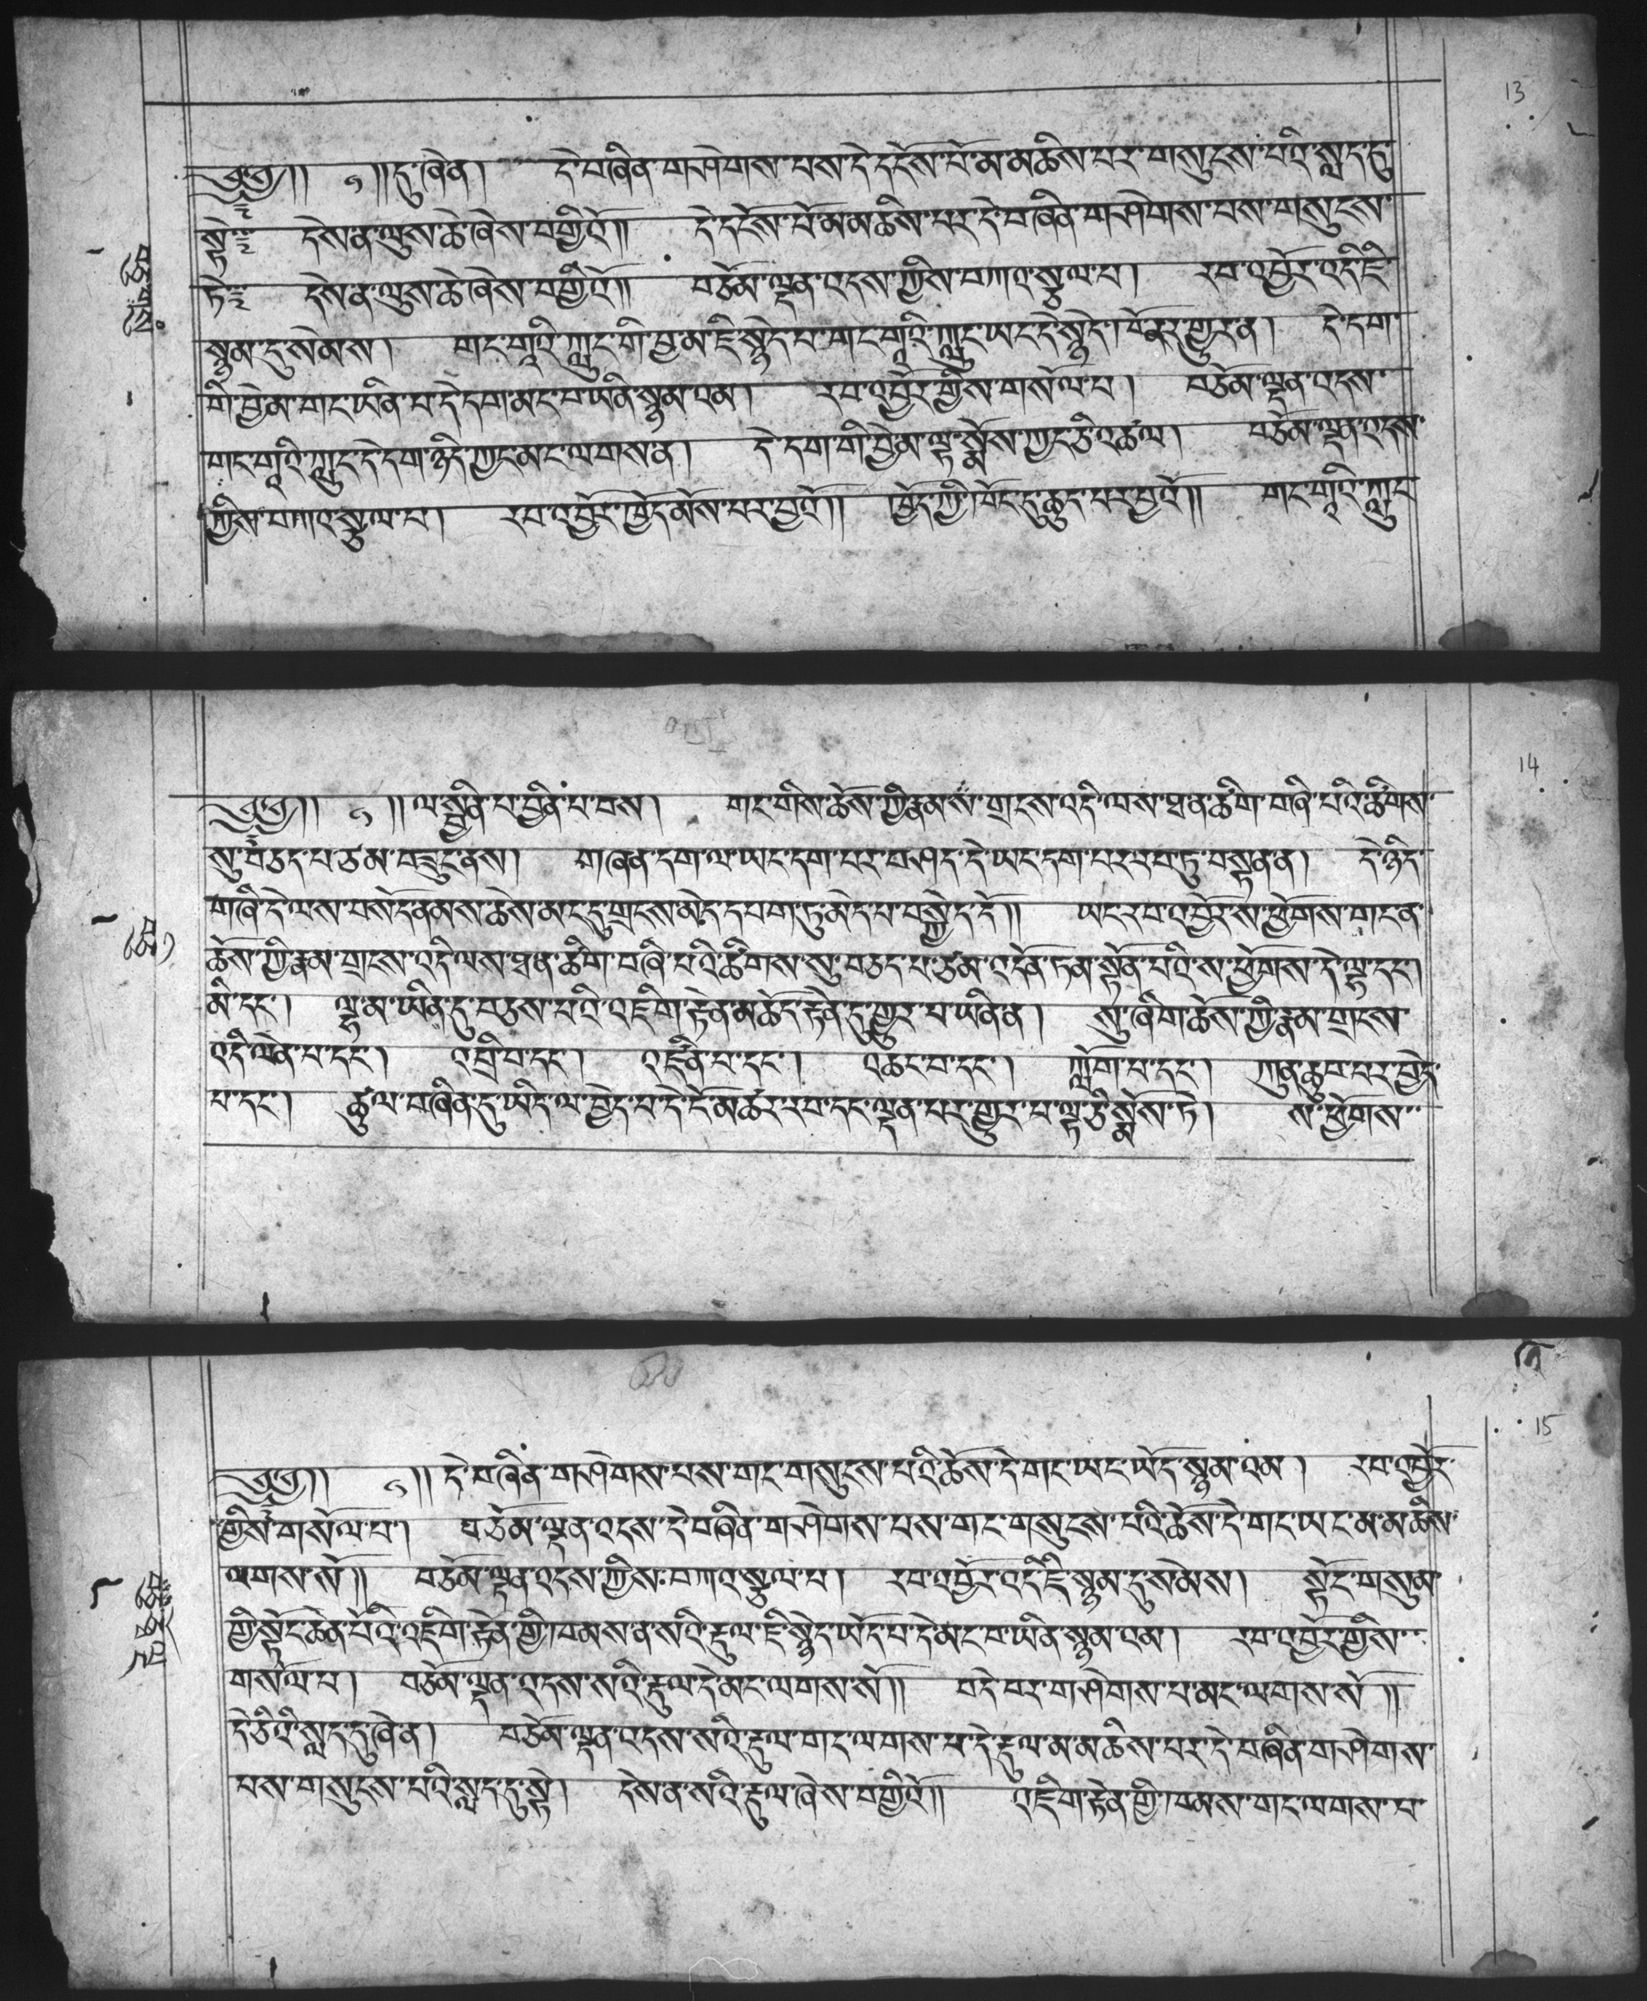 13
༄༅།། །།དུ་ཞེ་ན། དེ་བཞིན་གཤེགས་པས་དེ་དངོས་པོ་མ་མཆིས་པར་གསུངས་པའི་སླད་དུ་
སྟེ༔ དེས་ན་ལུས་ཆེ་ཞེས་བགྱིའོ།། དེ་དངོས་པོ་མ་མཆིས་པར་དེ་བཞིན་གཤེགས་པས་གསུངས་
ཏེ༔ དེས་ན་ལུས་ཆེ་ཞེས་བགྱིའོ།། བཅོམ་ལྡན་འདས་ཀྱིས་བཀའ་སྩལ་པ། རབ་འབྱོར་འདི་ཇི་
སྙམ་དུ་སེམས། གང་གཱའི་ཀླུང་གི་བྱེ་མ་ཇི་སྙེད་པ་གང་གཱའི་ཀླུང་ཡང་དེ་སྙེད་ཁོ་ནར་གྱུར་ན། དེ་དག་
གི་བྱེ་མ་གང་ཡིན་པ་དེ་དག་མང་བ་ཡིན་སྙམ་འམ། རབ་འབྱོར་གྱིས་གསོལ་པ། བཅོམ་ལྡན་འདས་
གང་གཱའི་ཀླུང་དེ་དག་ཉིད་ཀྱང་མང་ལགས་ན། དེ་དག་གི་བྱེ་མ་ལྟ་སྨོས་ཀྱང་ཅི་འཚལ། བཅོམ་ལྡན་འདས་
ཀྱིས་བཀའ་སྩལ་པ། རབ་འབྱོར་ཁྱེད་མོས་པར་བྱའོ།། ཁྱོད་ཀྱི་ཁོང་དུ་ཆུད་པར་བྱའོ།། གང་གཱའི་ཀླུང་
14
༄༅།། །།ལ་སྦྱིན་པ་བྱིན་པ་བས། གང་གིས་ཆོས་ཀྱི་རྣམས་གྲངས་འདི་ལས་ཐ་ན་ཚིག་བཞི་པའི་ཚིགས་
སུ་བཅད་པ་ཙམ་བཟུང་ནས། གཞན་དག་ལ་ཡང་དག་པར་བཤད་དེ་ཡང་དག་པར་རབ་ཏུ་བསྟན་ན། དེ་ཉིད་
གཞི་དེ་ལས་བསོད་ནམས་ཆེས་མང་དུ་གྲངས་མེད་དཔག་ཏུ་མེད་པ་བསྐྱེད་དོ།། ཡང་རབ་འབྱོར་ས་ཕྱོགས་གང་ན་
ཆོས་ཀྱི་རྣམ་གྲངས་འདི་ལས་ཐ་ན་ཚིག་བཞི་པའི་ཚིགས་སུ་བཅད་པ་ཙམ་འདོན་ཏམ་སྟོན་པའི་ས་ཕྱོགས་དེ་ལྷ་དང༌།
མི་དང༌། ལྷ་མ་ཡིན་དུ་བཅས་པའི་འཇིག་རྟེན་མཆོད་རྟེན་དུ་གྱུར་པ་ཡིན་ན། སུ་ཞིག་ཆོས་ཀྱི་རྣམ་གྲངས་
འདི་ལེན་པ་དང༌། འབྲི་བ་དང༌། འཛིན་པ་དང༌། འཆང་བ་དང༌། ཀློག་པ་དང༌། ཀུན་ཆུབ་པར་བྱེད་
པ་དང༌། ཚུལ་བཞིན་དུ་ཡིད་ལ་བྱེད་པ་དེ་ངོ་མཚར་རབ་དང་ལྡན་པར་གྱུར་པ་ལྟ་ཅི་སྨོས་ཏེ། ས་ཕྱོགས་
15
༄༅།། །།དེ་བཞིན་གཤེགས་པས་གང་གསུངས་པའི་ཆོས་དེ་གང་ཡང་ཡོད་སྙམ་འམ། རབ་འབྱོར་
གྱིས་གསོལ་པ། བཅོམ་ལྡན་འདས་དེ་བཞིན་གཤེགས་པས་གང་གསུངས་པའི་ཆོས་དེ་གང་ཡང་མ་མཆིས་
ལགས་སོ།། བཅོམ་ལྡན་འདས་ཀྱིས་བཀའ་སྩལ་པ། རབ་འབྱོར་འདི་ཇི་སྙམ་དུ་སེམས། སྟོང་གསུམ་
གྱི་སྟོང་ཆེན་པོའི་འཇིག་རྟེན་གྱི་ཁམས་ན་སའི་རྡུལ་ཇི་སྙེད་ཡོད་པ་དེ་མང་བ་ཡིན་སྙམ་འམ། རབ་འབྱོར་གྱིས་
གསོལ་པ། བཅོམ་ལྡན་འདས་སའི་རྡུལ་དེ་མང་ལགས་སོ།། བདེ་བར་གཤེགས་པ་མང་ལགས་སོ།།
དེ་ཅིའི་སླད་དུ་ཞེ་ན། བཅོམ་ལྡན་འདས་སའི་རྡུལ་གང་ལགས་པ་དེ་རྡུལ་མ་མཆིས་པར་དེ་བཞིན་གཤེགས་
པས་གསུངས་པའི་སླད་དུ་སྟེ། དེས་ན་སའི་རྡུལ་ཞེས་བགྱིའོ།། འཇིག་རྟེན་གྱི་ཁམས་གང་ལགས་པ་